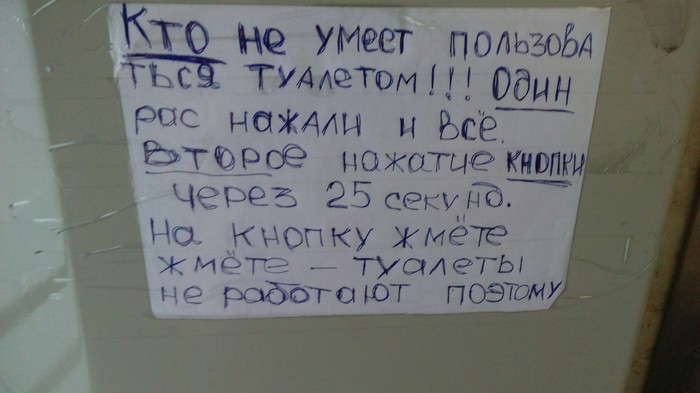 Кто не умеет пользова
ться туалетом!!! Один
рас нажали и всё.
Второе нажатие кнопки
через 25 секунд.
На кнопку жмёте
жмёте – туалеты
не работают поэтому